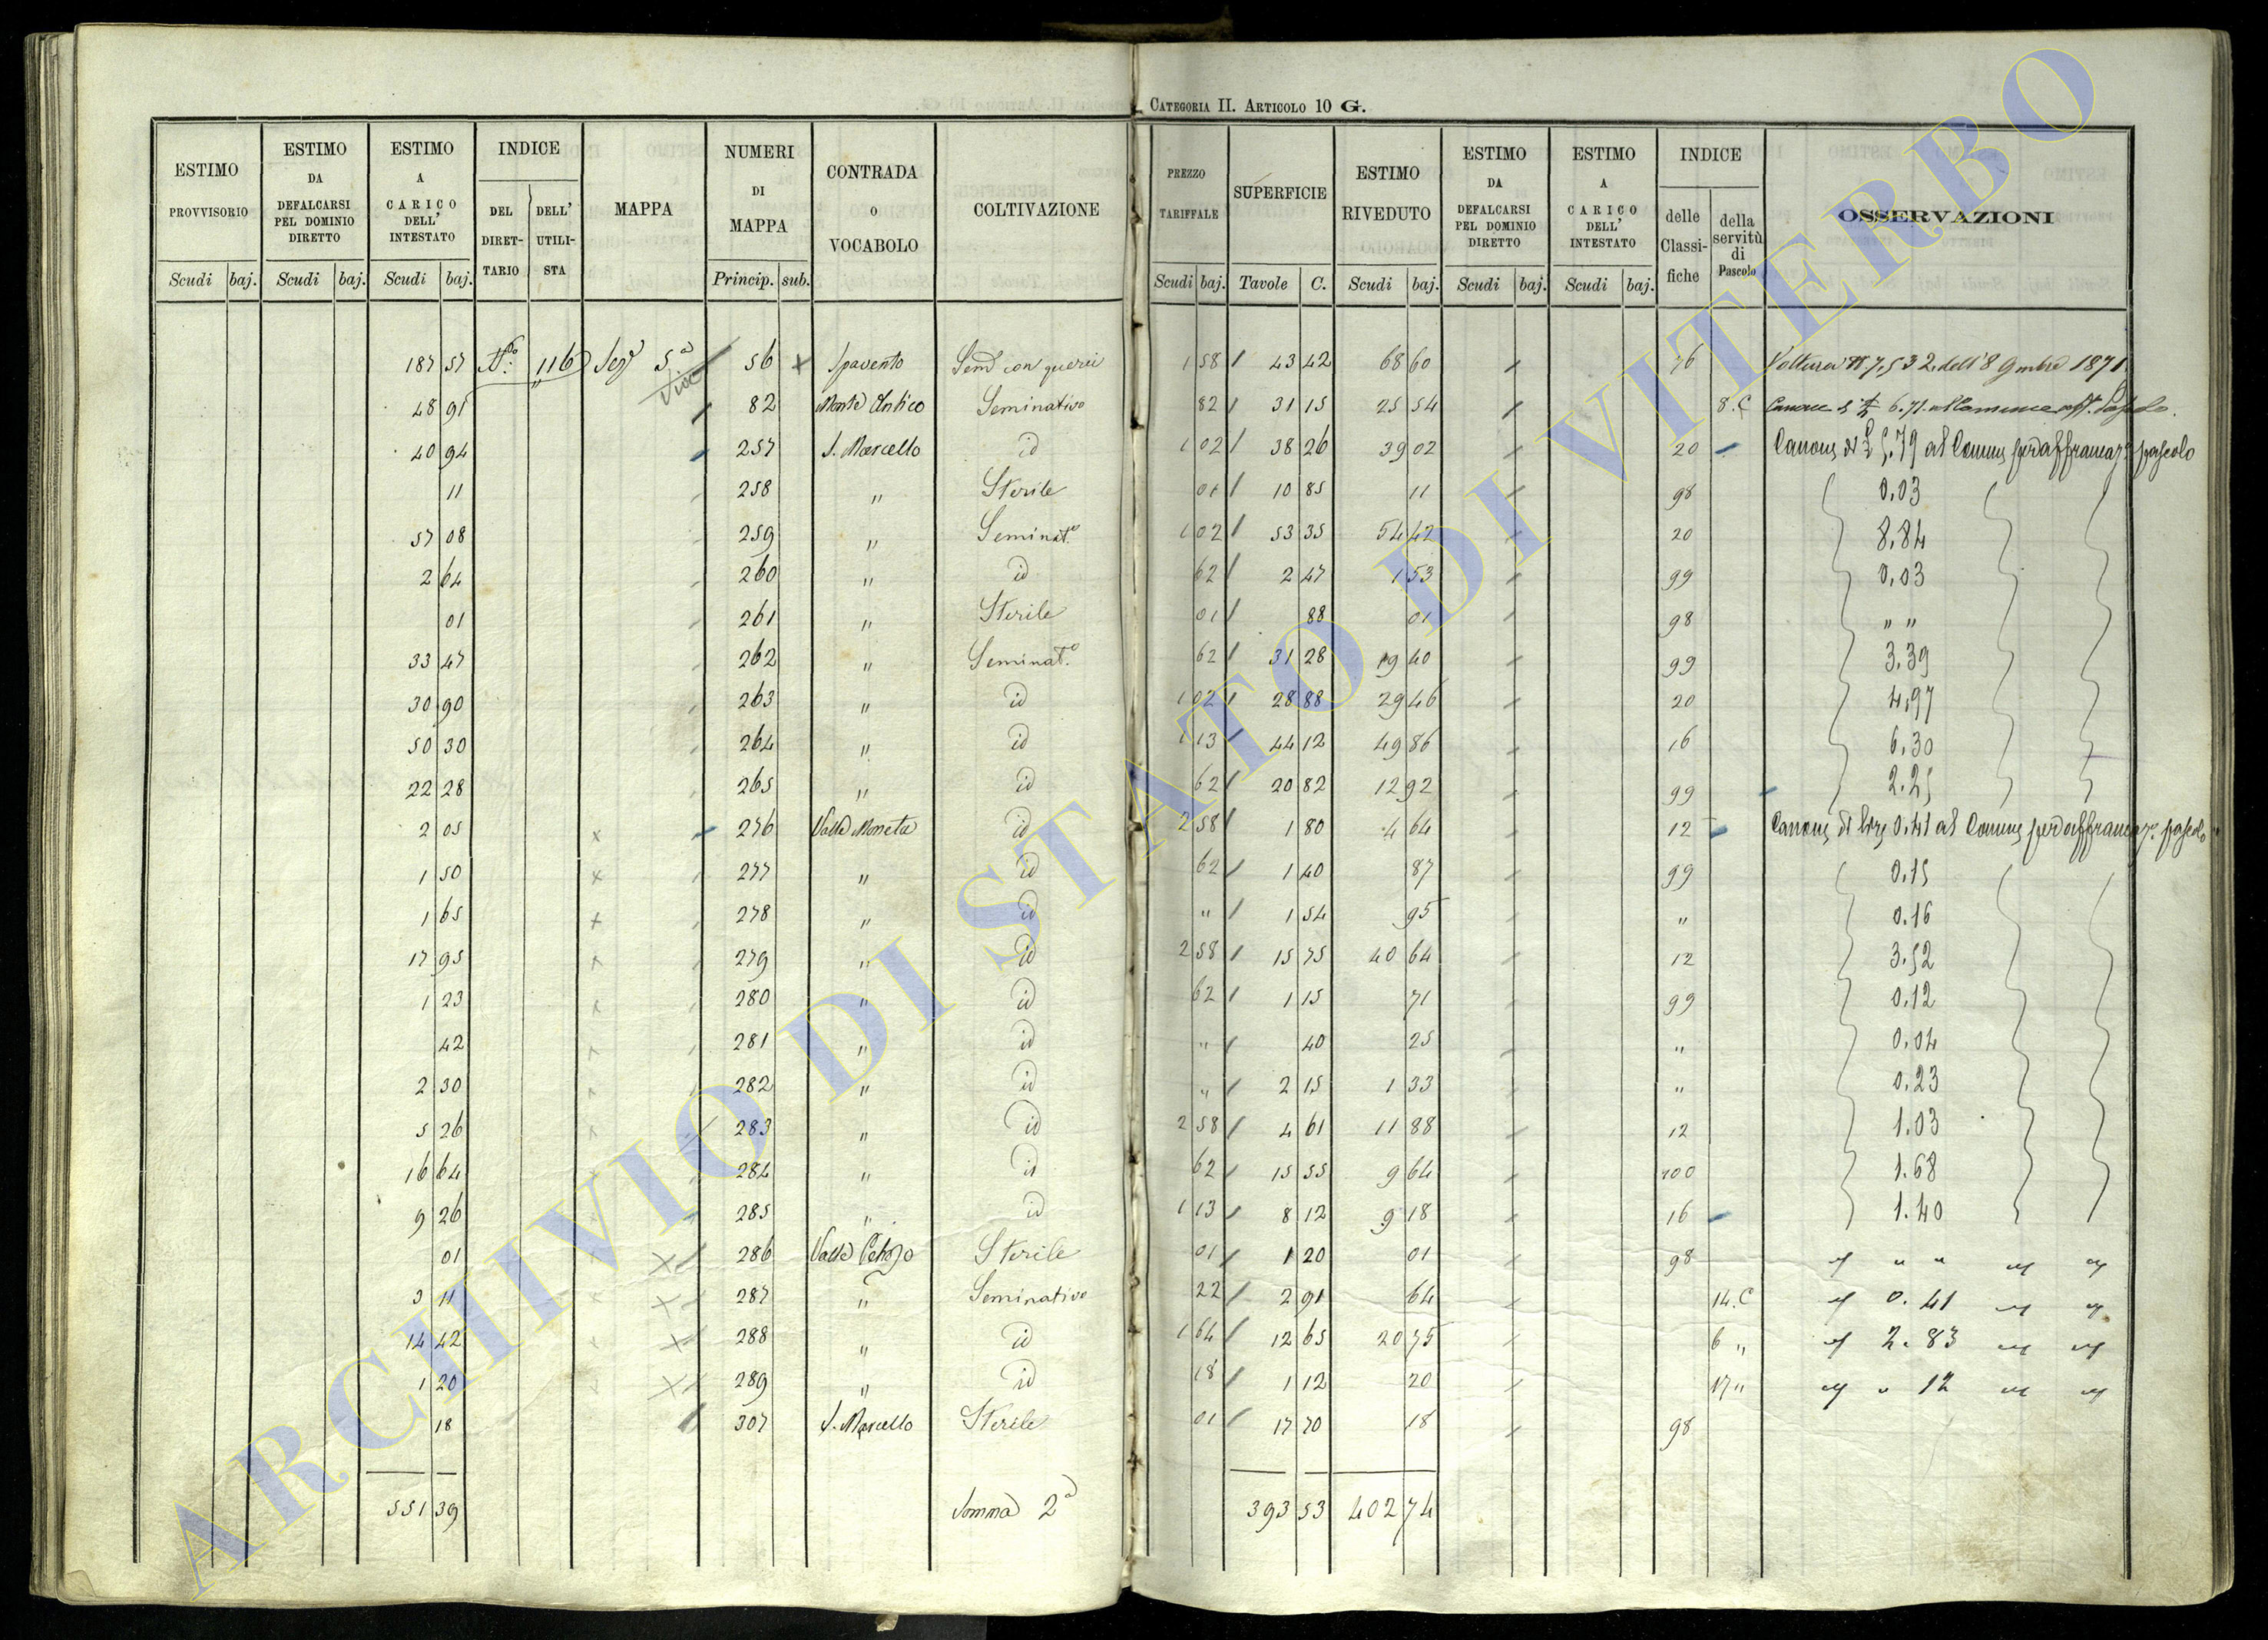 CATEGORIA II. ARTICOLO 10 G.
ESTIMO PROVVISORIO Scudi baj. | ESTIMO DA DEFALCARSI PEL DOMINIO DIRETTO Scudi baj. | ESTIMO A CARICO DELL' INTESTATO Scudi baj. | INDICE DEL DIRETTARIO | DELL' UTILISTA | MAPPA | NUMERI DI MAPPA Princip. sub. | CONTRADA O VOCABOLO | COLTIVAZIONE | PREZZO TARIFFALE Scudi baj. | SUPERFICIE Tavole C. | ESTIMO RIVEDUTO Scudi baj. | ESTIMO DA DEFALCARSI PEL DOMINIO DIRETTO Scudi baj. | ESTIMO A CARICO DELL' INTESTATO Scudi baj. | INDICE delle Classifiche | della servitù di Pascolo | OSSERVAZIONI
187 57 116 Segr 5a 56 Spavento Semo con querci 1 58 43 42 68 60 76 Voltura N 7,532 dell' 8 9mbre 1871
48 91 82 Monte Antico Seminativo 82 31 15 25 54 8.C Canone di 6.71
40 94 257 S. Marcello id 1 02 38 26 39 02 20 Canone di £ 5.79 al Comune per affrancaz. pascolo
11 258 " Sterile 01 10 85 11 98 0,03
57 08 259 " Seminato 1 02 53 35 54 42 20 8,84
2 64 260 " id 62 2 47 1 53 99 0,03
01 261 " Sterile 01 88 01 98 " "
33 47 262 " Seminato 62 31 28 19 40 99 3,39
30 90 263 " id 1 02 28 88 29 46 20 4,97
50 30 264 " id 1 13 44 12 49 86 16 6,30
22 28 265 " id 62 20 82 12 92 99 2.25
2 05 276 Valle Moneta id 2 58 1 80 4 64 12 Canone di lire 0.41 al Comune per affrancaz. pascolo
1 50 277 " id 62 1 40 87 99 0.15
1 65 278 " id " 1 54 95 " 0.16
17 95 279 " id 2 58 15 75 40 64 12 3.52
1 23 280 " id 62 1 15 71 99 0.12
42 281 " id " 40 25 " 0.04
2 30 282 " id " 2 15 1 33 " 0.23
5 26 283 " id 2 58 4 61 11 88 12 1.03
16 64 284 " id 62 15 55 9 64 100 1.68
9 26 285 " id 1 13 8 12 9 18 16 1.40
01 286 Valle Sterile 01 1 20 01 98 " "
3 11 287 " Seminativo 22 2 91 64 14.C 0.41
14 42 288 " id 1 64 12 65 20 75 6 " 2.83
1 20 289 " id 18 1 12 20 17 " " 12
18 307 S. Marcello Sterile 01 17 70 18 98
551 39 Somma 2a 393 53 402 74
ARCHIVIO DI STATO DI VITERBO